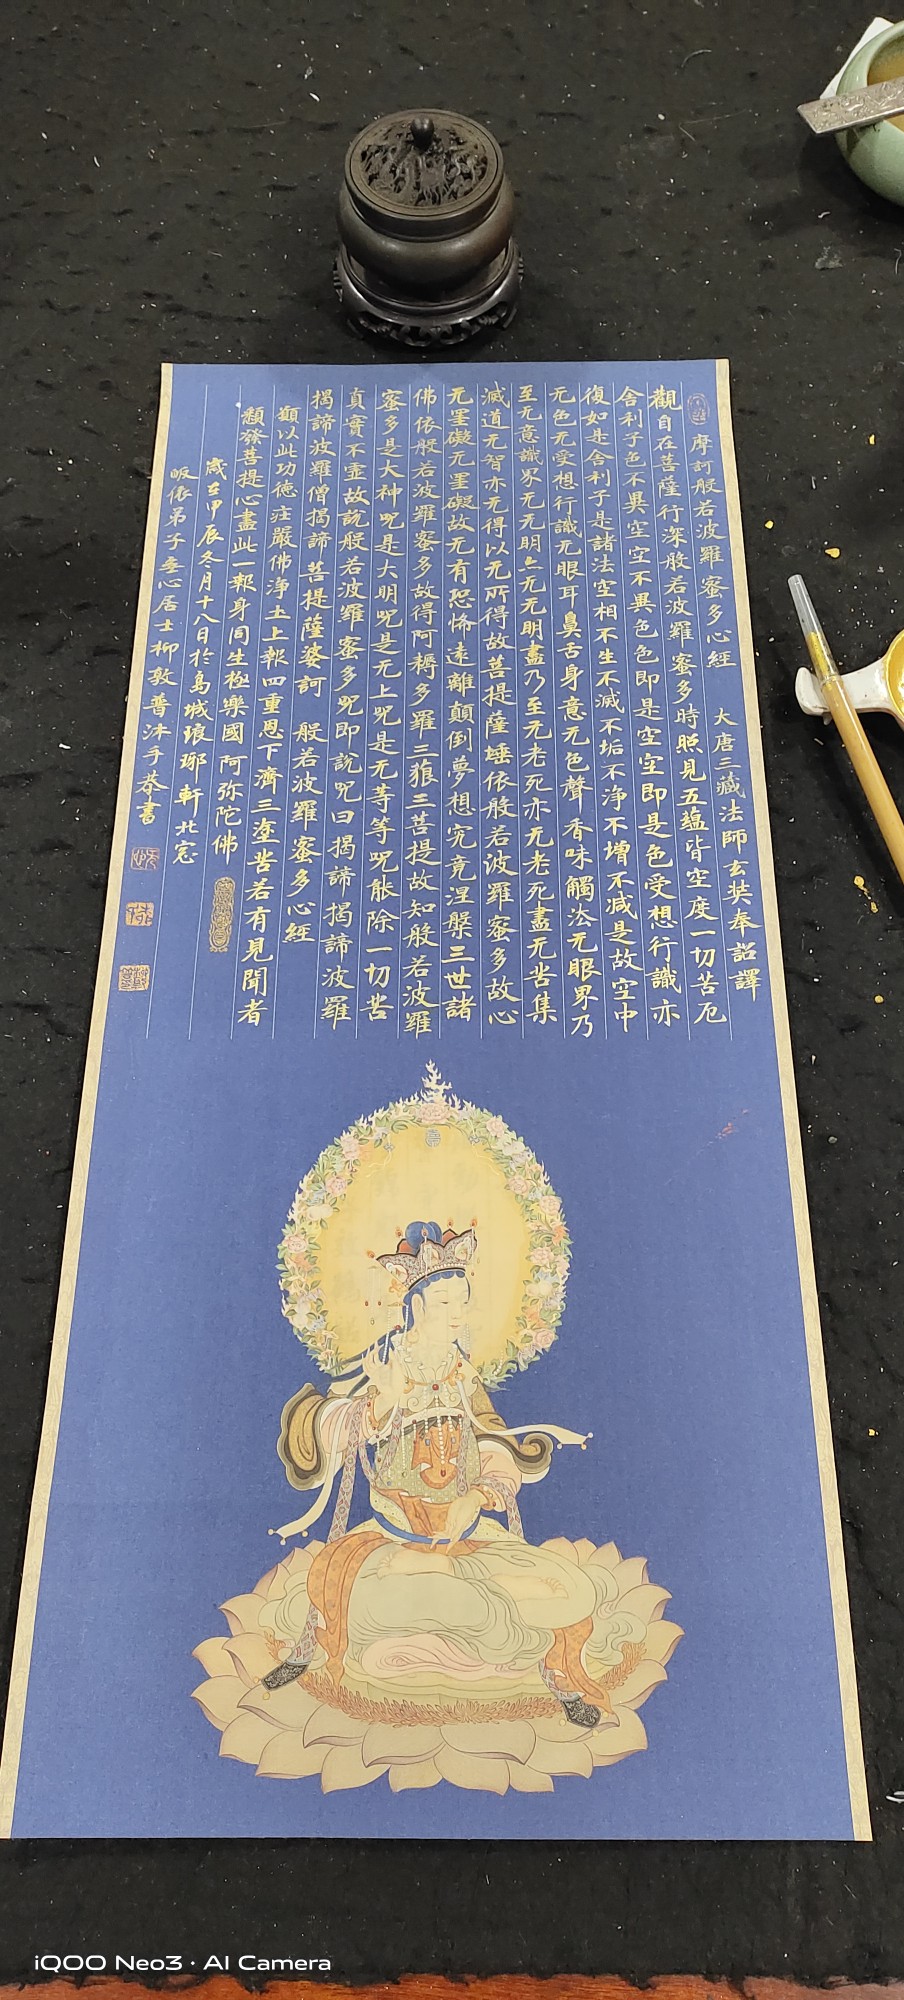 摩訶般若波羅蜜多心經
大唐三藏法師玄奘奉詔譯
觀自在菩薩行深般若波羅蜜多時照見五蘊皆空度一切苦厄
舍利子色不異空空不異色色即是空空即是色受想行識亦
復如是舍利子是諸法空相不生不滅不垢不净不增不减是故空中
无色无受想行識无眼耳鼻舌身意无色聲香味觸法无眼界乃
至无意識界无无明亦无无明盡乃至无老死亦无老死盡无苦集
滅道无智亦无得以无所得故菩提薩埵依般若波羅蜜多故心
无罣礙无罣礙故无有恐怖遠離顛倒夢想究竟涅槃三世諸
佛依般若波羅蜜多故得阿耨多羅三藐三菩提故知般若波羅
蜜多是大神咒是大明咒是无上咒是无等等咒能除一切苦
真實不虛故說般若波羅蜜多咒即說咒曰揭諦揭諦波羅
揭諦波羅僧揭諦菩提薩婆訶 般若波羅蜜多心經
願以此功德莊嚴佛净土上報四重恩下濟三塗苦若有見聞者
願發菩提心盡此一報身同生極樂國 阿弥陀佛
歲在甲辰冬月十八日於島城琅琊軒北窓
皈依弟子 心居士柳敦普沐手恭書
iQOO Neo3 · AI Camera